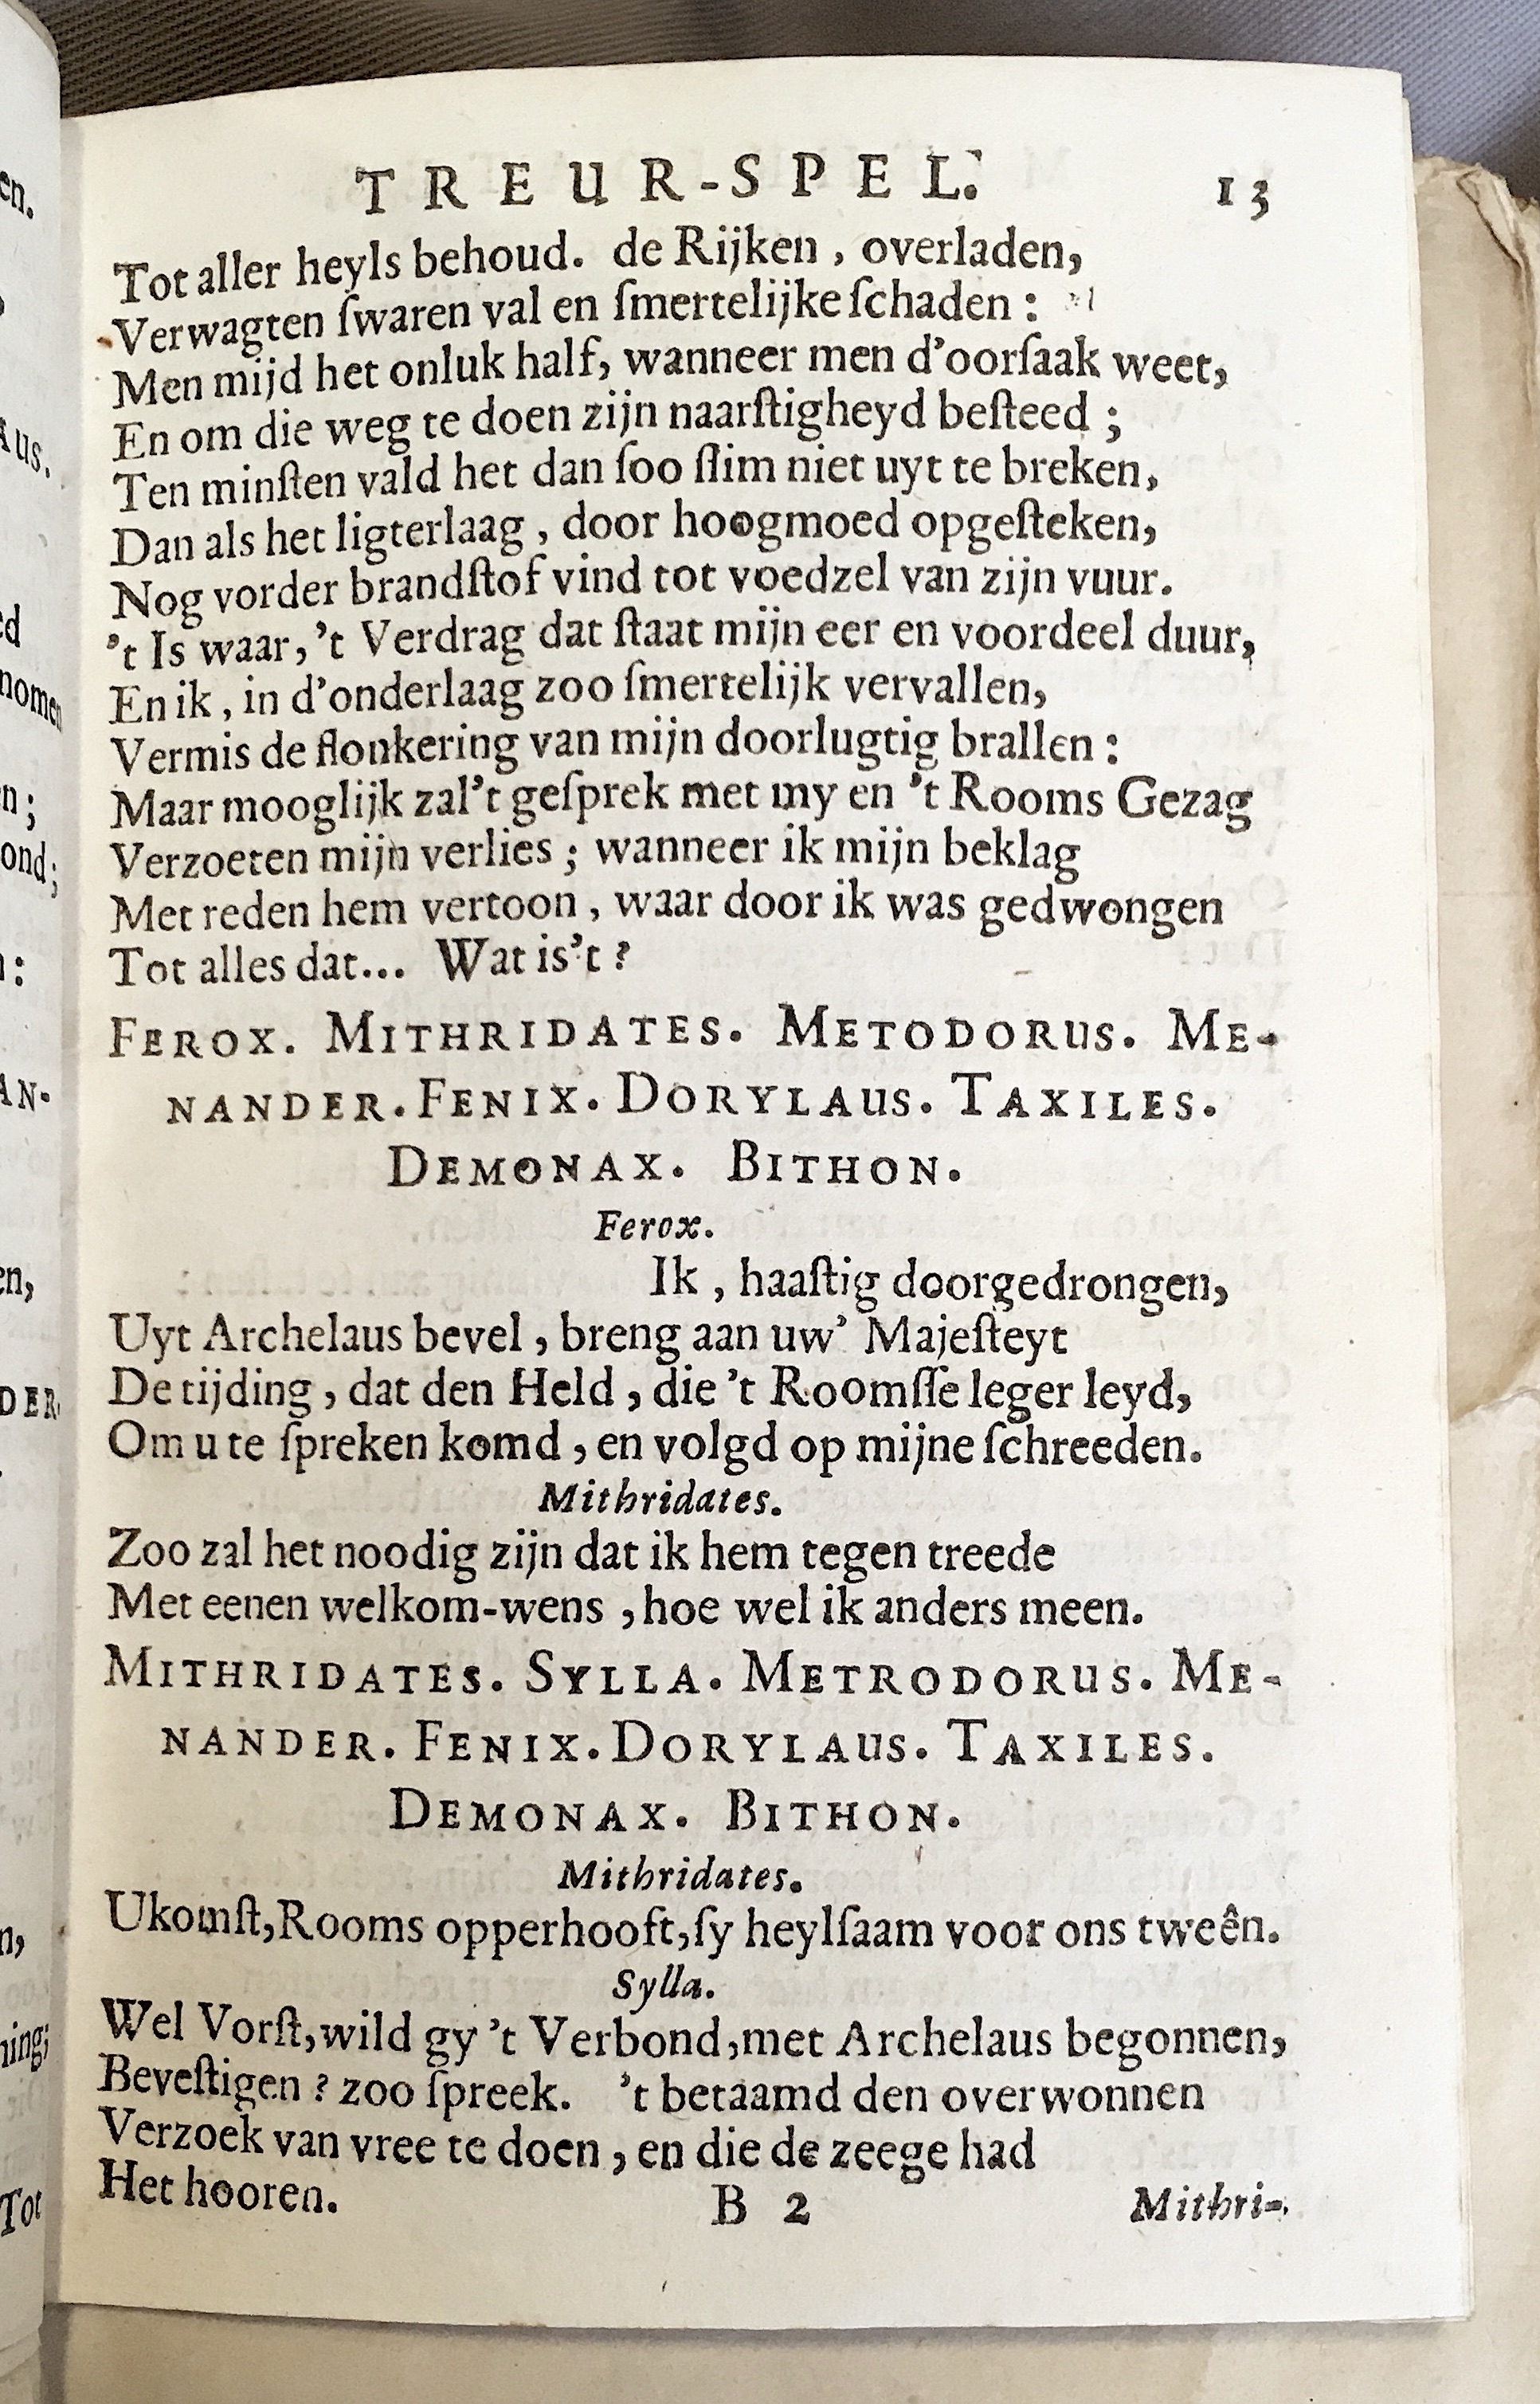 TREUR-SPEL. 13
Tot aller heyls behoud. de Rijken, overladen,
Verwagten ſwaren val en ſmertelijke ſchaden:
Men mijd het onluk half, wanneer men d'oorſaak weet,
En om die weg te doen zijn naarſtigheyd beſteed;
Ten minſten vald het dan ſoo ſlim niet uyt te breken,
Dan als het ligterlaag, door hoogmoed opgeſteken,
Nog vorder brandſtof vind tot voedzel van zijn vuur.
't Is waar, 't Verdrag dat ſtaat mijn eer en voordeel duur,
En ik, in d'onderlaag zoo ſmertelijk vervallen,
Vermis de flonkering van mijn doorlugtig brallen:
Maar mooglijk zal't geſprek met my en 't Rooms Gezag
Verzoeten mijn verlies; wanneer ik mijn beklag
Met reden hem vertoon, waar door ik was gedwongen
Tot alles dat... Wat is't?
FEROX. MITHRIDATES. METODORUS. ME-
NANDER. FENIX. DORYLAUS. TAXILES.
DEMONAX. BITHON.
Ferox.
Ik, haaſtig doorgedrongen,
Uyt Archelaus bevel, breng aan uw' Majeſteyt
De tijding, dat den Held, die 't Roomſſe leger leyd,
Om u te ſpreken komd, en volgd op mijne ſchreeden.
Mithridates.
Zoo zal het noodig zijn dat ik hem tegen treede
Met eenen welkom-wens, hoe wel ik anders meen.
MITHRIDATES. SYLLA. METRODORUS. ME-
NANDER. FENIX. DORYLAUS. TAXILES.
DEMONAX. BITHON.
Mithridates.
U komſt, Rooms opperhooft, ſy heylſaam voor ons tweên.
Sylla.
Wel Vorſt, wild gy 't Verbond, met Archelaus begonnen,
Beveſtigen? zoo ſpreek. 't betaamd den overwonnen
Verzoek van vree te doen, en die de zeege had
Het hooren. B 2 Mithri-